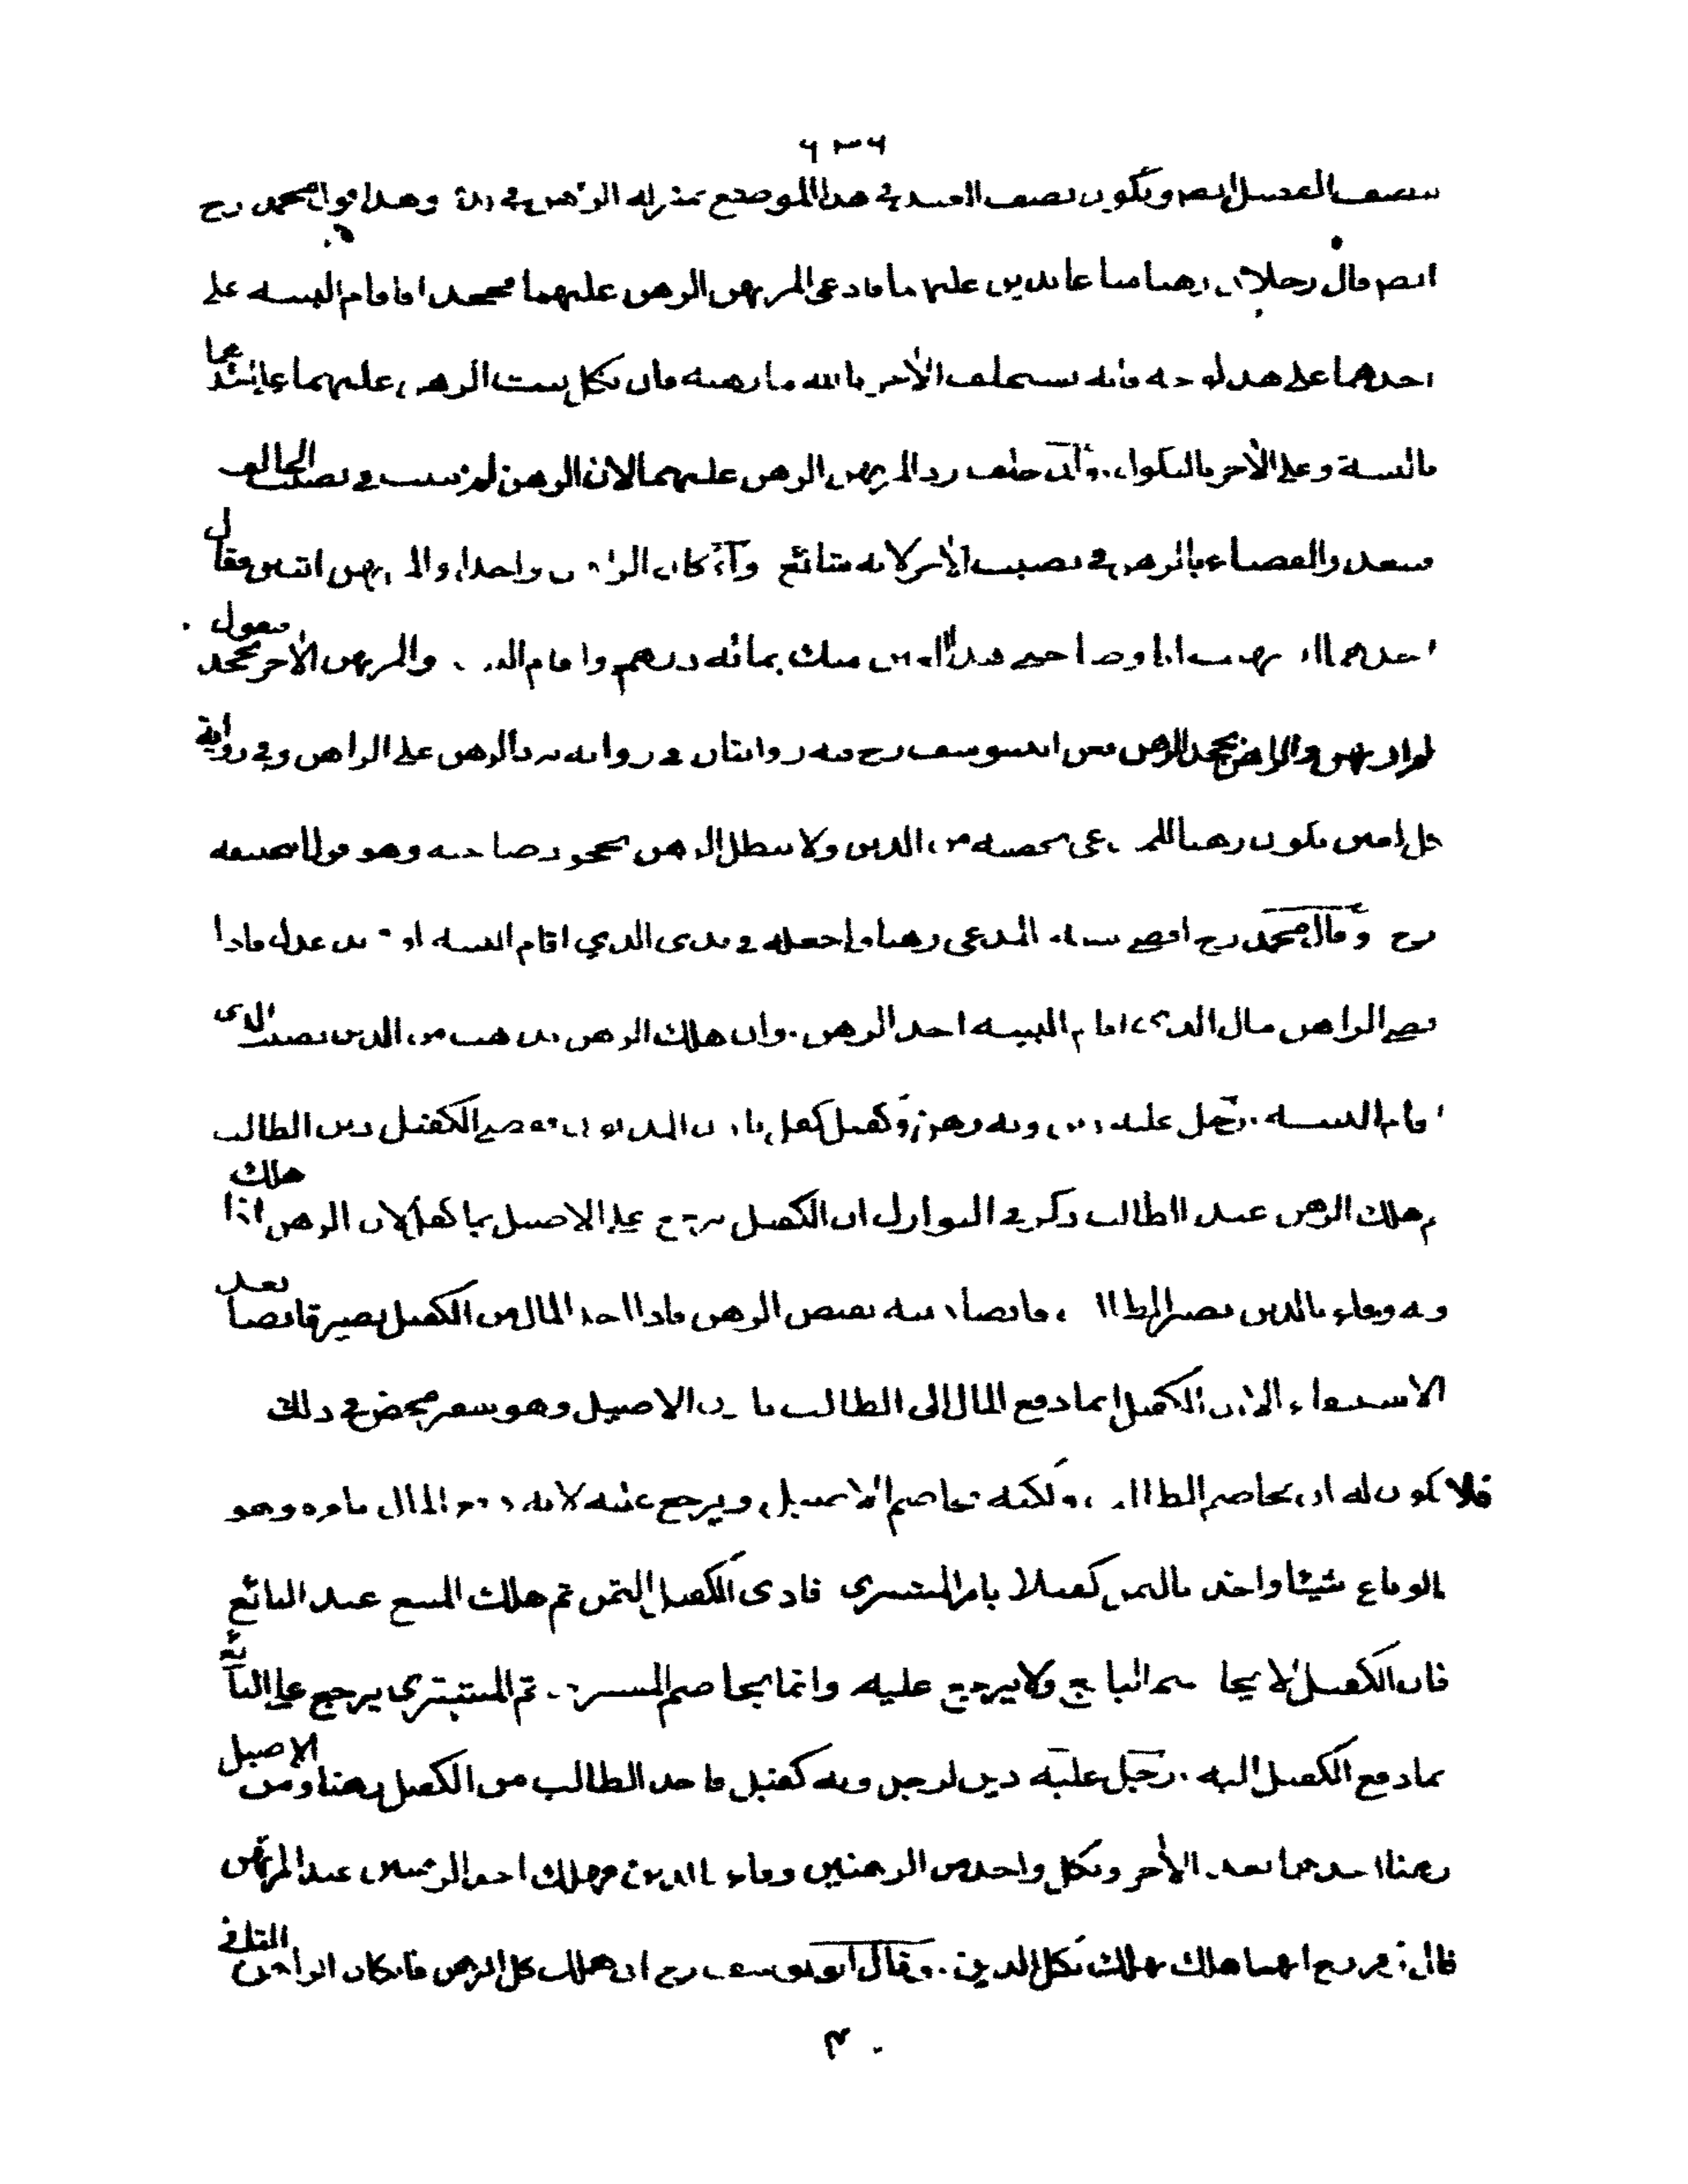 ٦٣٦
بنصف الفضل ايضا ويكون نصف العبد في هذا الموضع بمنزلة الرهن في وهذا قول محمد رح
ايضا قال رجلان رهنا متاعا بدين عليهما فادعى المرتهن الرهن عليهما فجحدا فاقام البينة على
احدهما على هذا الوجه فانه يستحلف الآخر بالله ما رهنه فان نكل يثبت الرهن عليهما على هذا
بالبينة وعلى الآخر بالنكول. وان حلف رد المرتهن الرهن عليهما لان الرهن لم يثبت في نصيب الحالف
فتعذر القضاء بالرهن في نصيب الآخر لانه شائع وان كان الراهن واحدا والمرتهن اثنين فقال
احدهما ارتهنت انا وصاحبي هذا الرهن منك بمائة درهم واقام البينة والمرتهن الآخر يجحد فيقول
لم ارتهن والراهن يجحد الرهن فعن ابي يوسف رح فيه روايتان في رواية يرد الرهن على الراهن وفي رواية
يكون رهنا للمدعي بحصته من الدين ولا يبطل الرهن بجحود صاحبه وهو قول ابي حنيفة
رح وقال محمد رح اقضي ببينة المدعي رهنا واجعله في يدي الذي اقام البينة او يد عدل فاذا
قضى الراهن مال الذي اقام البينة اخذ الرهن. وان هلك الرهن يذهب من الدين نصيب الذي
اقام البينة. رجل عليه دين وبه رهن وكفيل كفل باذن المديون فقضى الكفيل دين الطالب
ثم هلك الرهن عند الطالب ذكر في النوازل ان الكفيل يرجع على الاصيل بما كفل لان الرهن اذا هلك
وبه وفاء بالدين يصير الطالب قابضا دينه بقبض الرهن فاذا اخذ المال من الكفيل يصير قابضا بعد
الاستيفاء الا ان الكفيل انما دفع المال الى الطالب باذن الاصيل وهو سفير محض في ذلك
فلا يكون له ان يخاصم الطالب ولكنه يخاصم الاصيل ويرجع عليه لانه دفع المال بامره وهو
لو باع شيئا واخذ بالثمن كفيلا بامر المشتري فادى الكفيل الثمن ثم هلك المبيع عند البائع
فان الكفيل لا يخاصم البائع ولا يرجع عليه وانما يخاصم المشتري ثم المشتري يرجع على البائع
بما دفع الكفيل اليه. رجل عليه دين لرجل وبه كفيل فاخذ الطالب من الكفيل رهنا ومن الاصيل
رهنا احدهما بعد الآخر وبكل واحد من الرهنين وفاء بالدين فهلك احد الرهنين عند المرتهن
قال زفر رح ايهما هلك يهلك بكل الدين. وقال ابو يوسف رح ان هلك كل الرهن فان كان الراهن الثاني